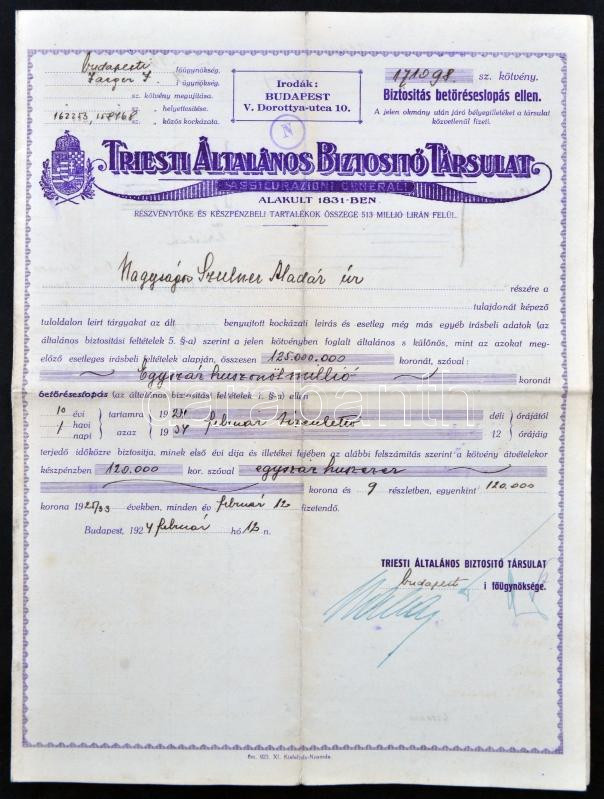 budapesti főügynökség.
Jaeger J. i ügynökség.
sz. kötvény megujitása.
sz. „ helyettesitése.
162253, 158768 sz. „ közös kockázata.
Irodák:
BUDAPEST
V. Dorottya-utca 10.
N
171098. sz. kötvény.
Biztosítás betöréseslopás ellen.
A jelen okmány után járó bélyegilletéket a társulat
közvetlenül fizeti.
TRIESTI ÁLTALÁNOS BIZTOSITÓ TÁRSULAT
(ASSICURAZIONI GENERALI)
ALAKULT 1831-BEN
RÉSZVÉNYTŐKE ÉS KÉSZPÉNZBELI TARTALÉKOK ÖSSZEGE 513 MILLIÓ LIRÁN FELÜL.
Nagyságos Szulner Aladár úr részére a
tulajdonát képező
tuloldalon leirt tárgyakat az ált benyujtott kockázati leirás és esetleg még más egyéb irásbeli adatok (az
általános biztositási feltételek 5. §-a) szerint a jelen kötvényben foglalt általános s különös, mint az azokat meg-
előző esetleges irásbeli feltételek alapján, összesen 125.000.000 koronát, szóval:
Egyszáz huszonöt millió koronát
betöréseslopás (az általános biztositási feltételek 1. §-a) ellen
10 évi
1 havi
napi
tartamra 19
azaz 1934 február tizenkettő
déli órájától
12 órájáig
terjedő időközre biztositja, minek első évi dija és illetékei fejében az alábbi felszámitás szerint a kötvény átvételekor
készpénzben 120.000 kor. szóval egyszáz huszezer
korona és 9 részletben, egyenkint 120,000
korona 1925/33 években, minden év február 12 fizetendő.
Budapest, 1924 február hó 12 n.
TRIESTI ÁLTALÁNOS BIZTOSITÓ TÁRSULAT
budapesti i főügynöksége.
darabanth